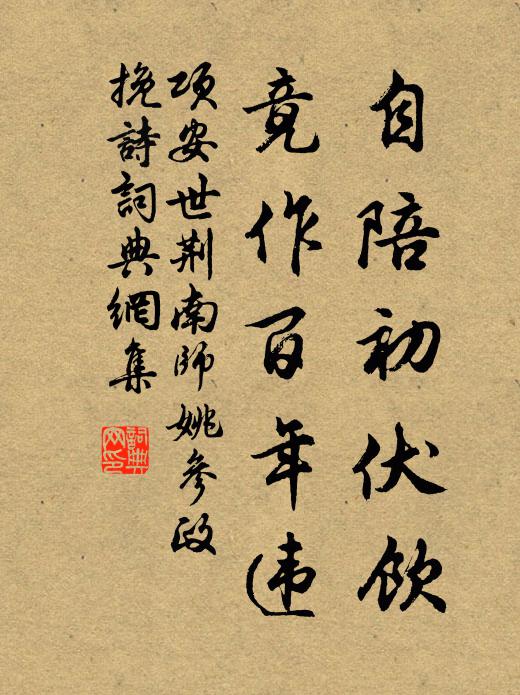 自陪初伏飲
竟作百年违
項安世荆南師姚參政
挽詩詞典網集
詞典
网印